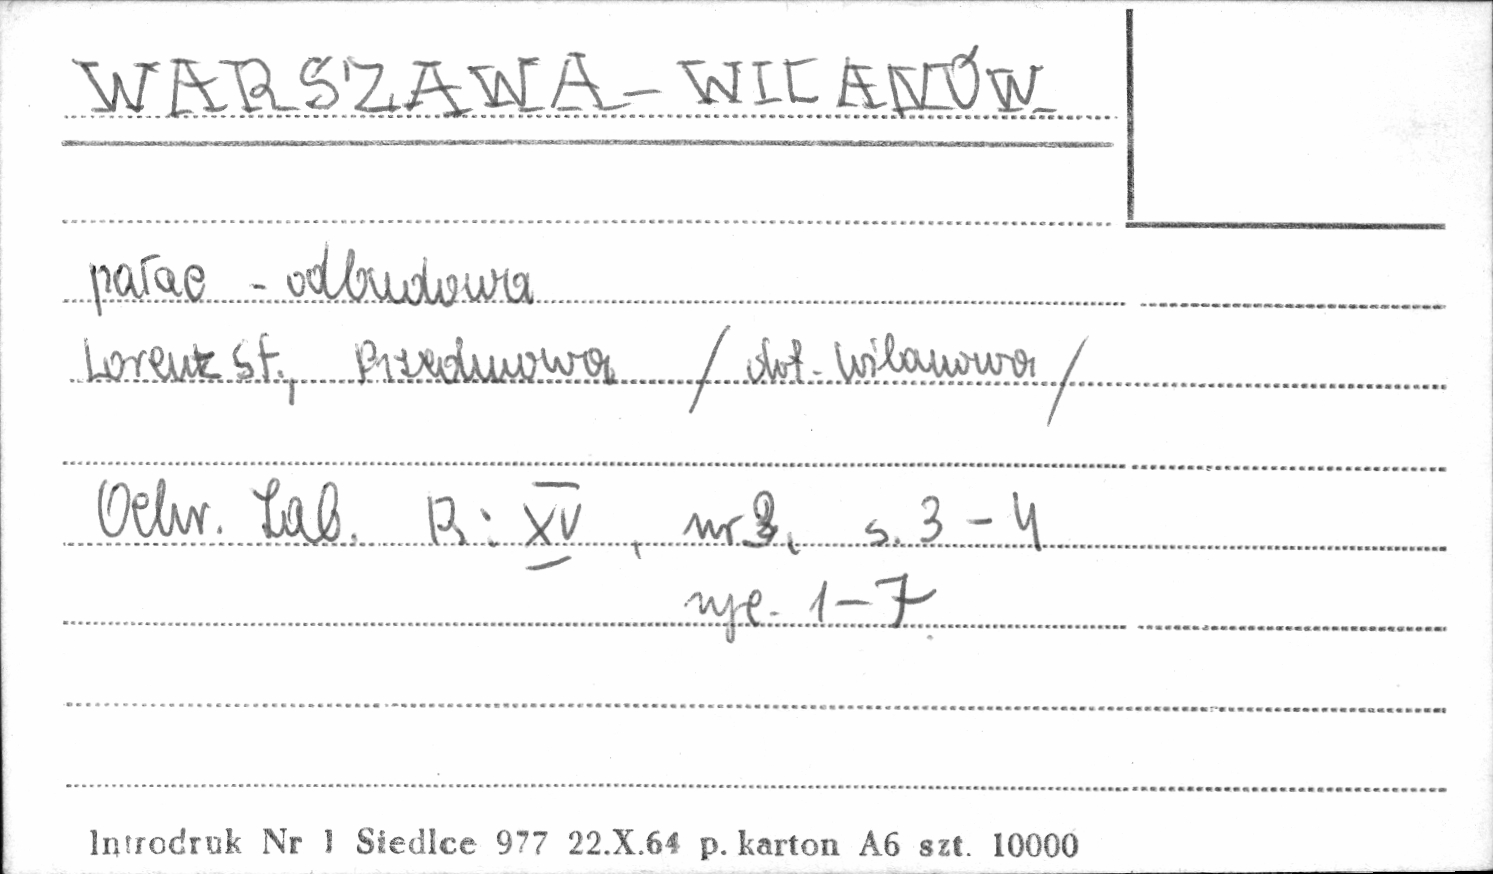 WARSZAWA-WILANÓW
pałac - odbudowa
Lorentz St., Przedmowa / dot. Wilanowa /
Ochr. Zab. R: XV, nr 2, s. 3-4
ryc. 1-7
Introdruk Nr 1 Siedlce 977 22.X.64 p. karton A6 szt. 10000